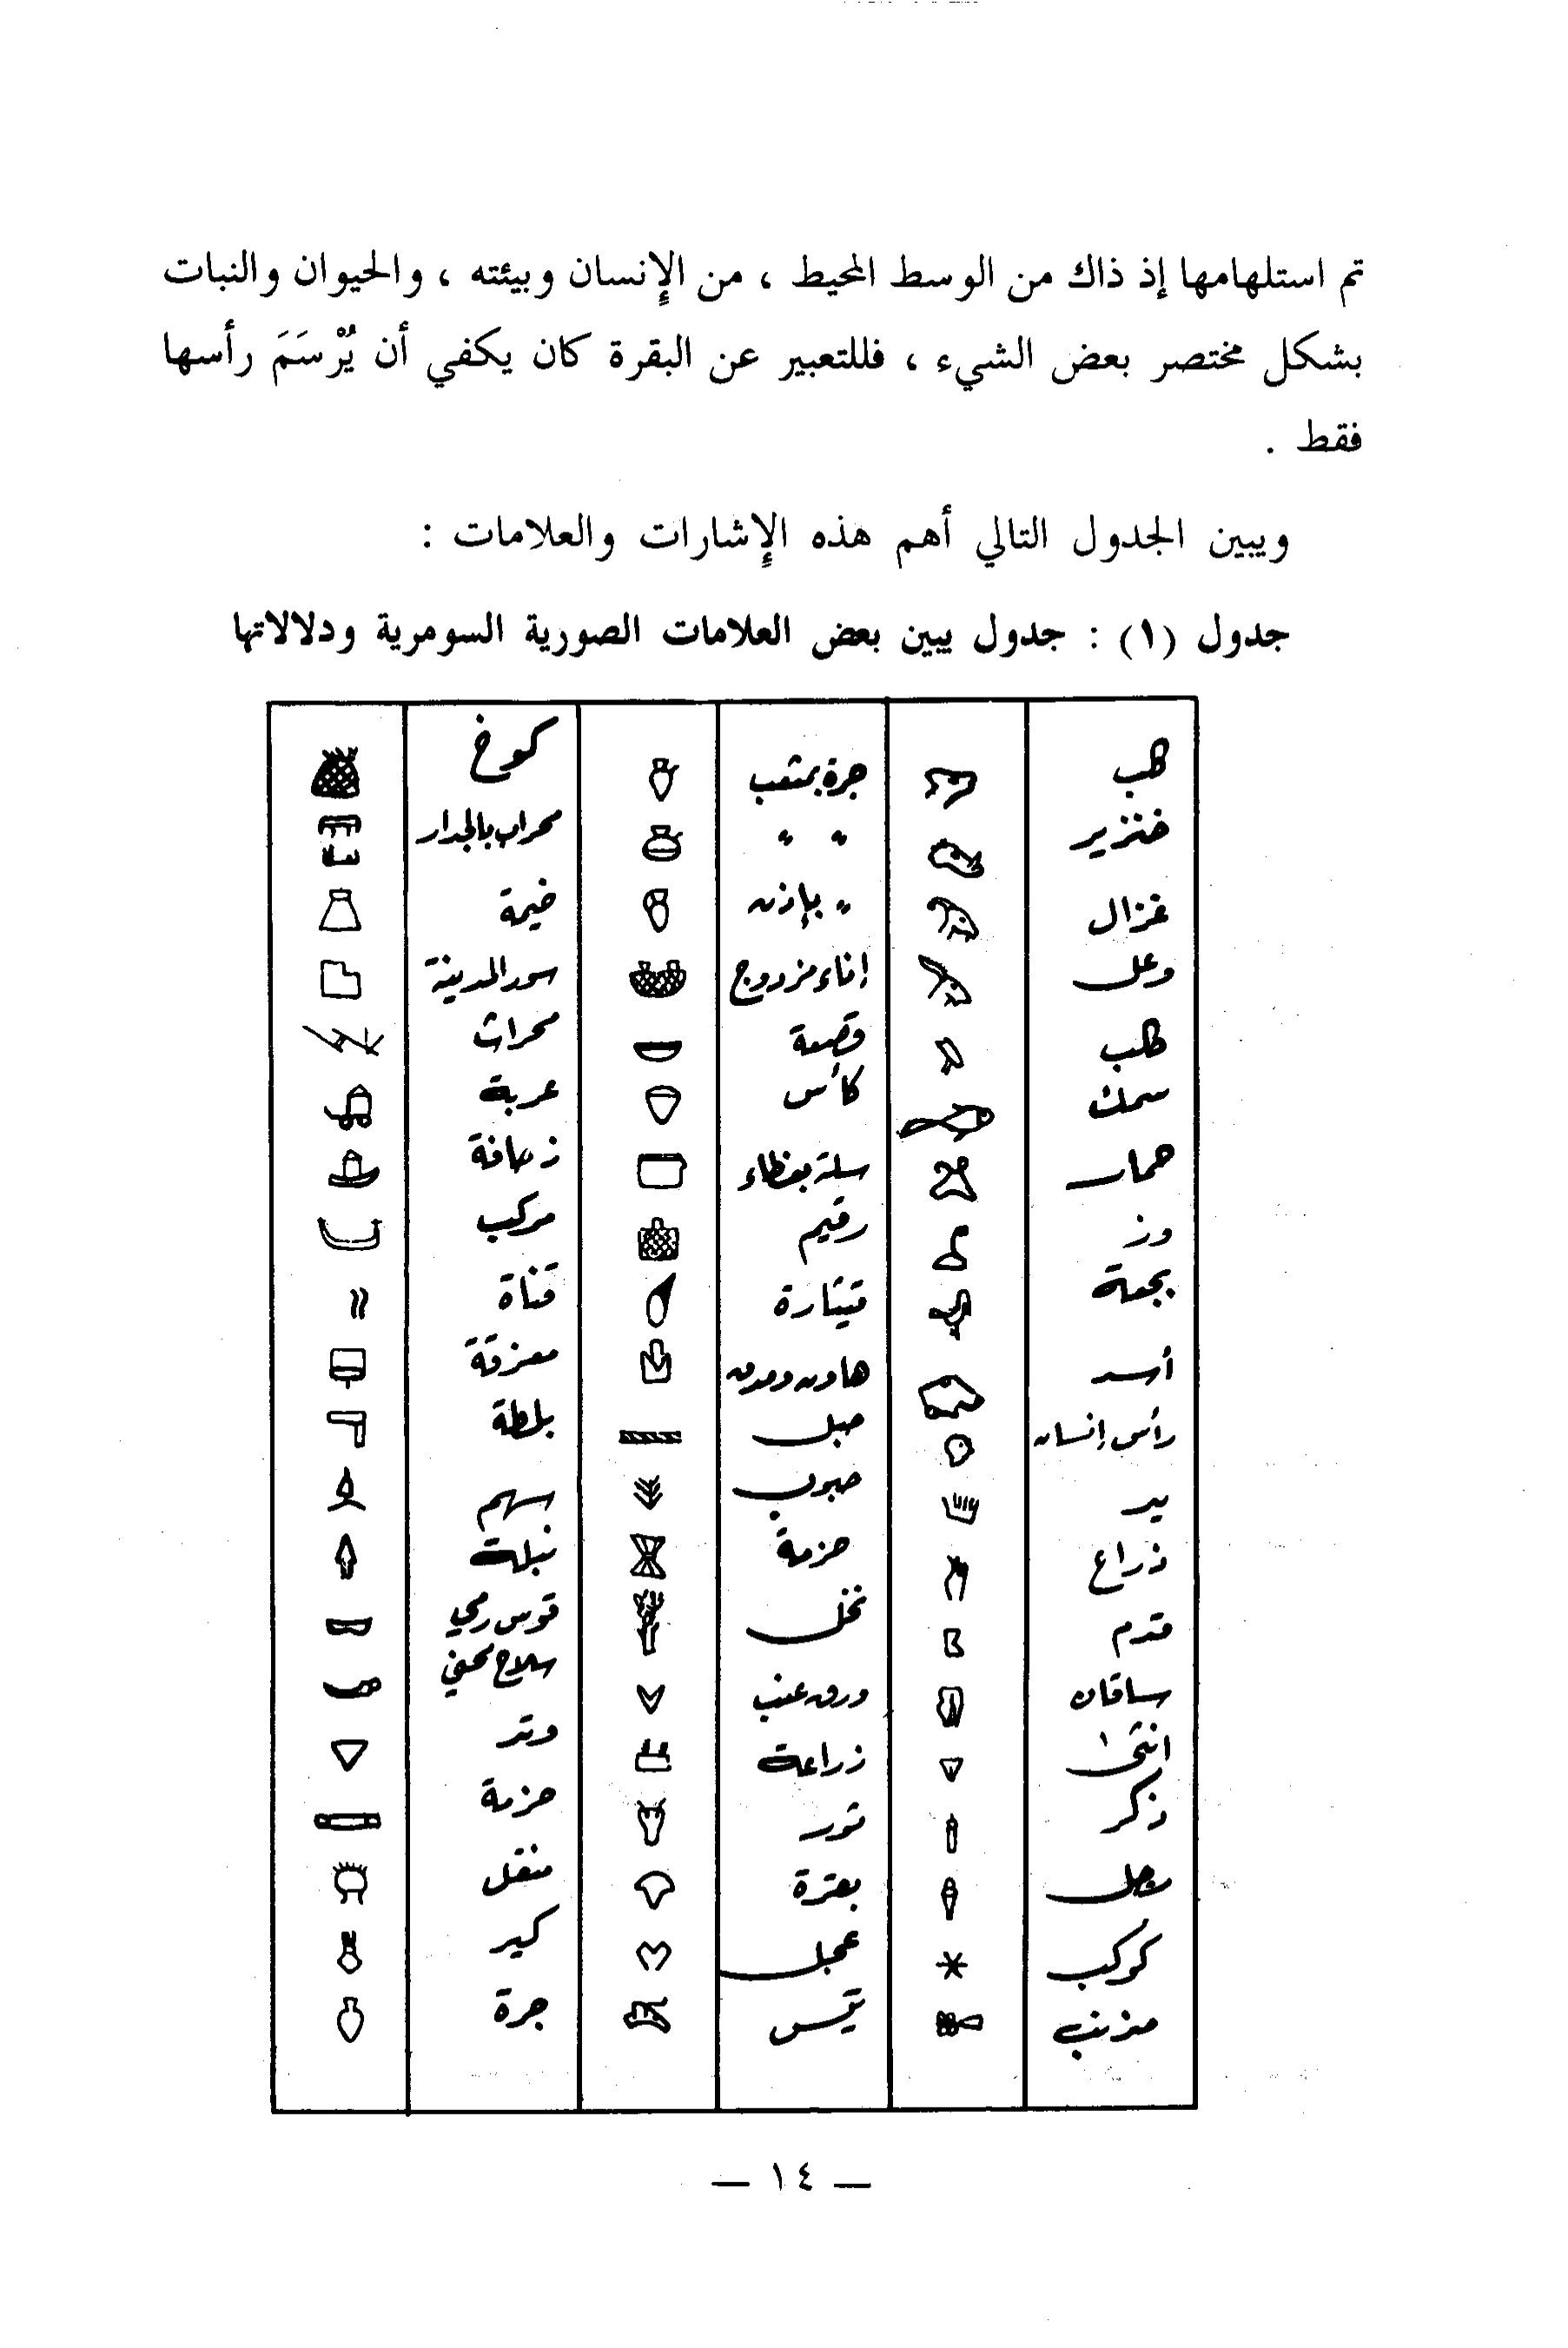 تم استلهامها إذ ذاك من الوسط المحيط ، من الإنسان وبيئته ، والحيوان والنبات
بشكل مختصر بعض الشيء ، فللتعبير عن البقرة كان يكفي أن يُرْسَمَ رأسها
فقط .
ويبين الجدول التالي أهم هذه الإشارات والعلامات :
جدول (١) : جدول يبين بعض العلامات الصورية السومرية ودلالاتها
جرة بمثعب كوخ
خنزير " " محراب بالجدار
غزال " بإذن خيمة
وعل إناء مزدوج سور المدينة
كلب قصعة محراث
سمك كأس عربة
حمار سلة بغطاء زحافة
وز رقيم مركب
بجعة قيثارة قناة
أسد هاون ومدق معزقة
رأس إنسان حبل بلطة
يد حبوب سهم
ذراع حزمة نبلة
قدم نخل قوس رمي
ساقان ورق عنب سلاح محني
انثى زراعة وتد
ذكر ثور حزمة
بقرة منقل
كوكب عجل كير
مذنب تيس جرة
— ١٤ —